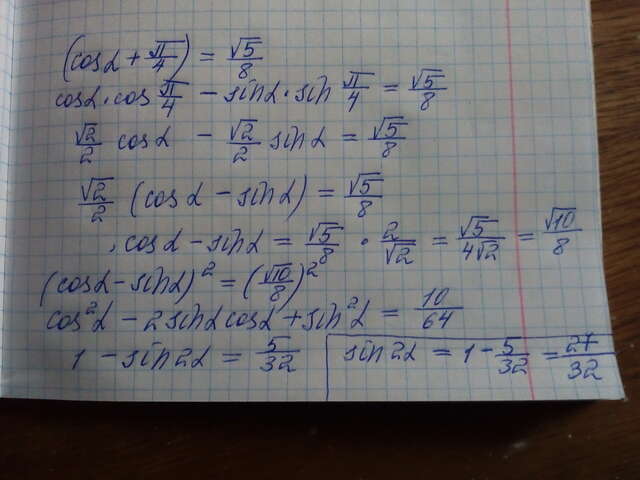 (cosα + π/4) = √5/8
cosα · cos π/4 − sinα · sin π/4 = √5/8
√2/2 cosα − √2/2 sinα = √5/8
√2/2 (cosα − sinα) = √5/8
cosα − sinα = √5/8 · 2/√2 = √5/4√2 = √10/8
(cosα − sinα)² = (√10/8)²
cos²α − 2sinαcosα + sin²α = 10/64
1 − sin2α = 5/32 sin2α = 1 − 5/32 = 27/32